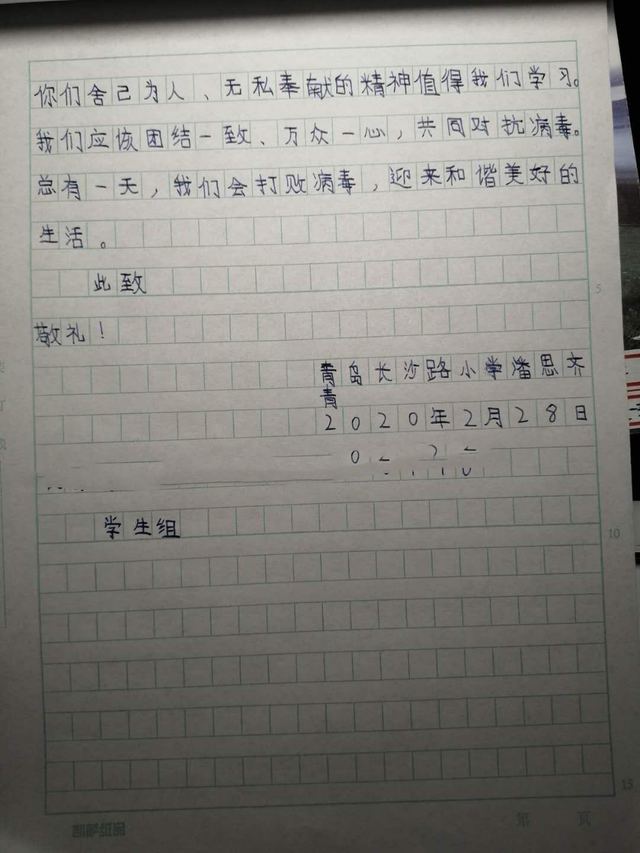 你们舍己为人、无私奉献的精神值得我们学习。
我们应该团结一致、万众一心，共同对抗病毒。
总有一天，我们会打败病毒，迎来和谐美好的
生活。
此致
5
敬礼！
青岛长沙路小学潘思齐
青
2020年2月28日
学生组
10
15
第 页